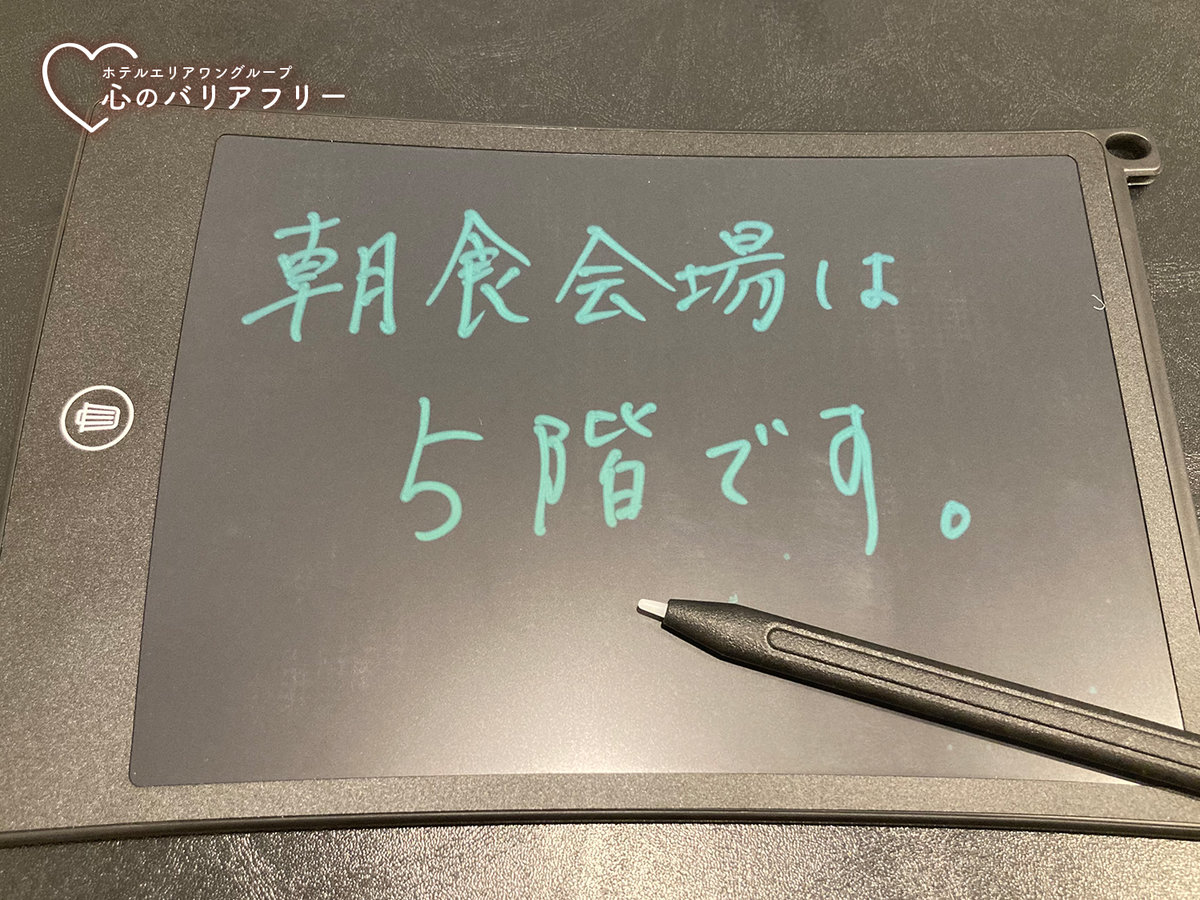 ホテルエリアワングループ
心のバリアフリー
朝食会場は
5階です。